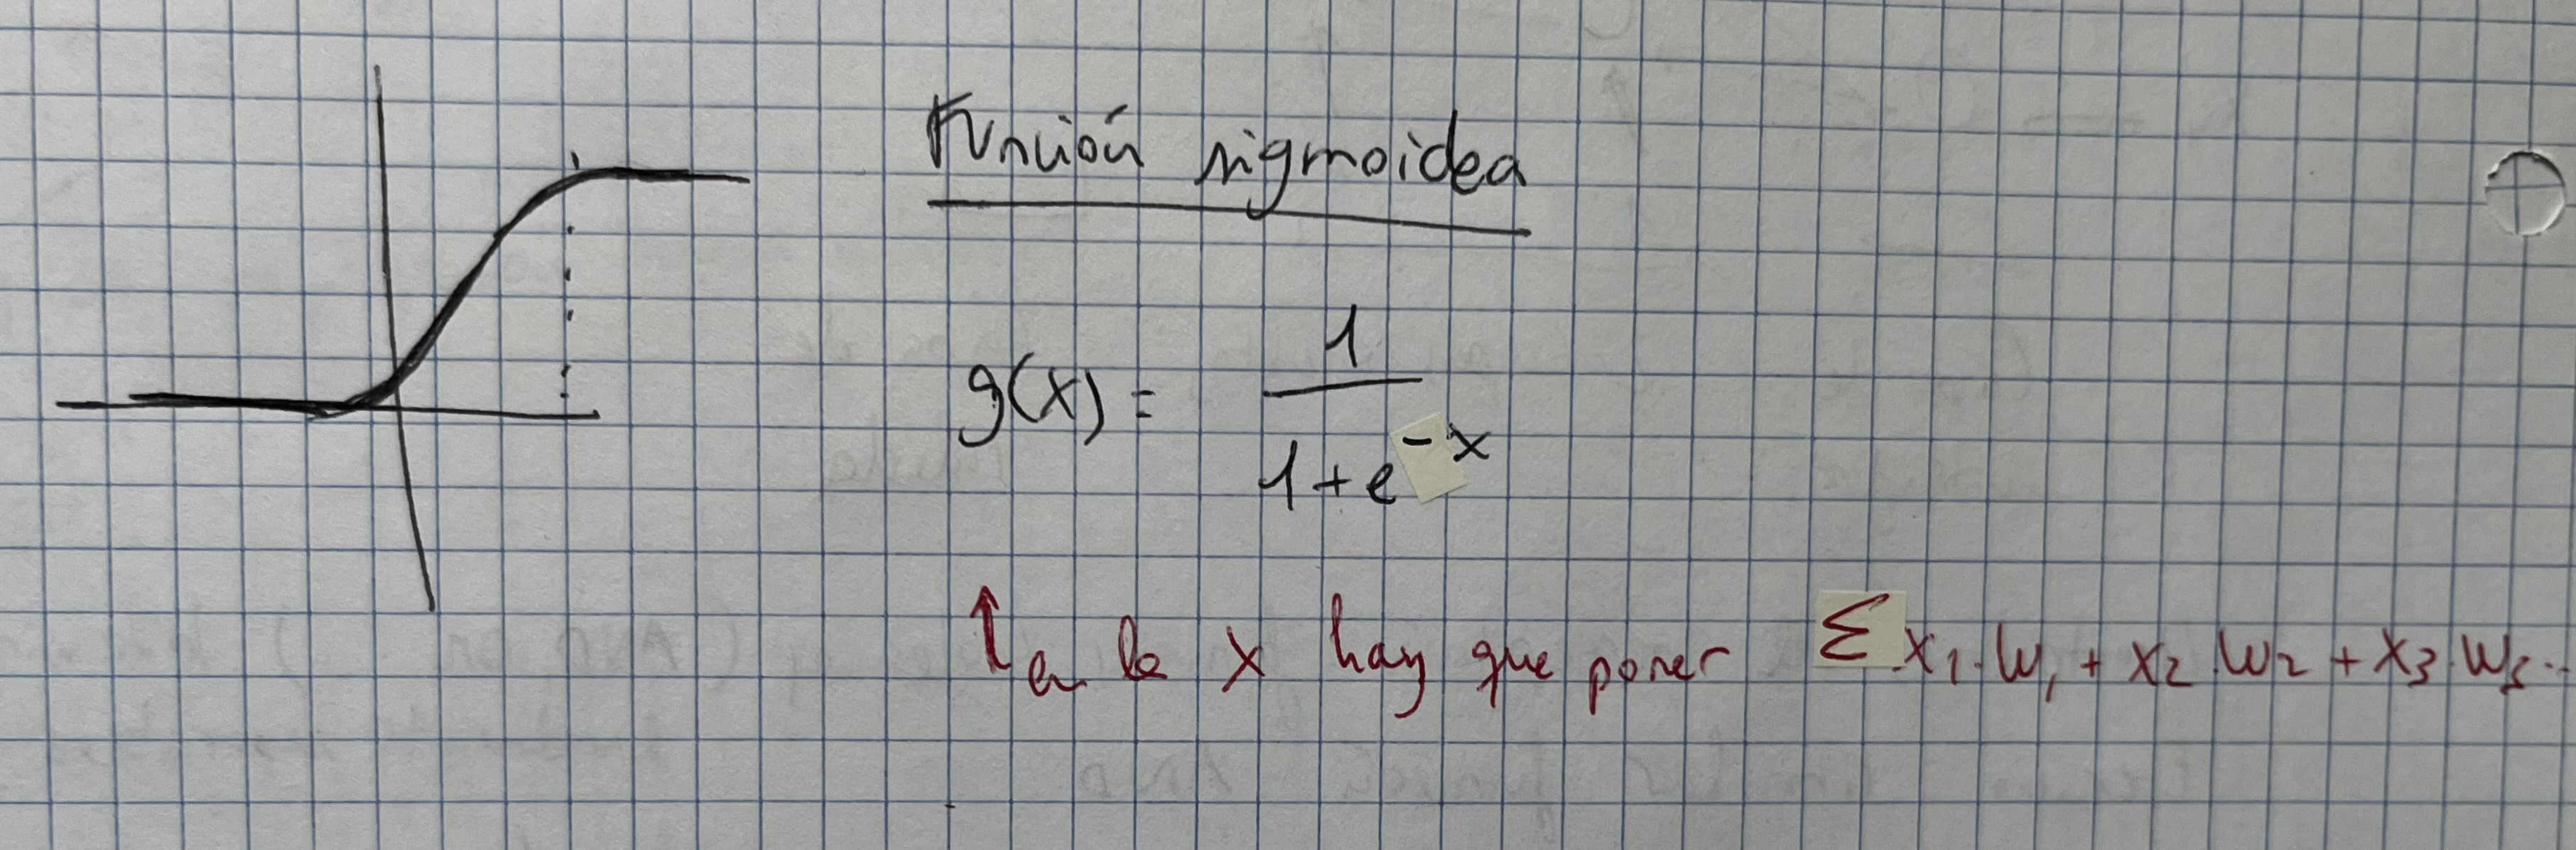 Función sigmoidea
g(x) = 1
1+e^-x
↑ en la x hay que poner Σ x1·w1 + x2·w2 + x3·w3..